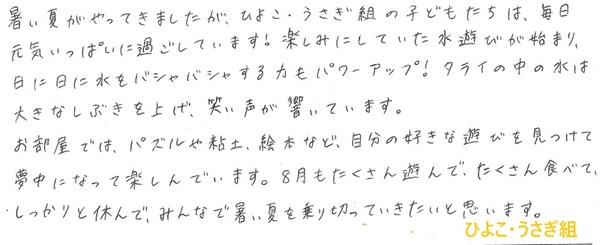 暑い夏がやってきましたが、ひよこ・うさぎ組の子どもたちは、毎日
元気いっぱいに過ごしています！楽しみにしていた水遊びが始まり、
日に日に水をバシャバシャする力もパワーアップ！タライの中の水は
大きなしぶきを上げ、笑い声が響いています。
お部屋では、パズルや粘土、絵本など、自分の好きな遊びを見つけて
夢中になって楽しんでいます。8月もたくさん遊んで、たくさん食べて、
しっかりと休んで、みんなで暑い夏を乗り切っていきたいと思います。
ひよこ・うさぎ組